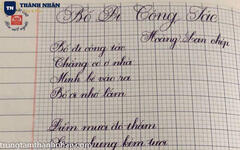 TN THÀNH NHÂN
Bố Đi Công Tác
Hoàng Lan chép
Bố đi công tác
Chẳng có ở nhà
Mình bé vào ra
Bé ơi nhớ lắm
Điểm mười đỏ thắm
bưng kem tươi
trungtamthanhnhan.com